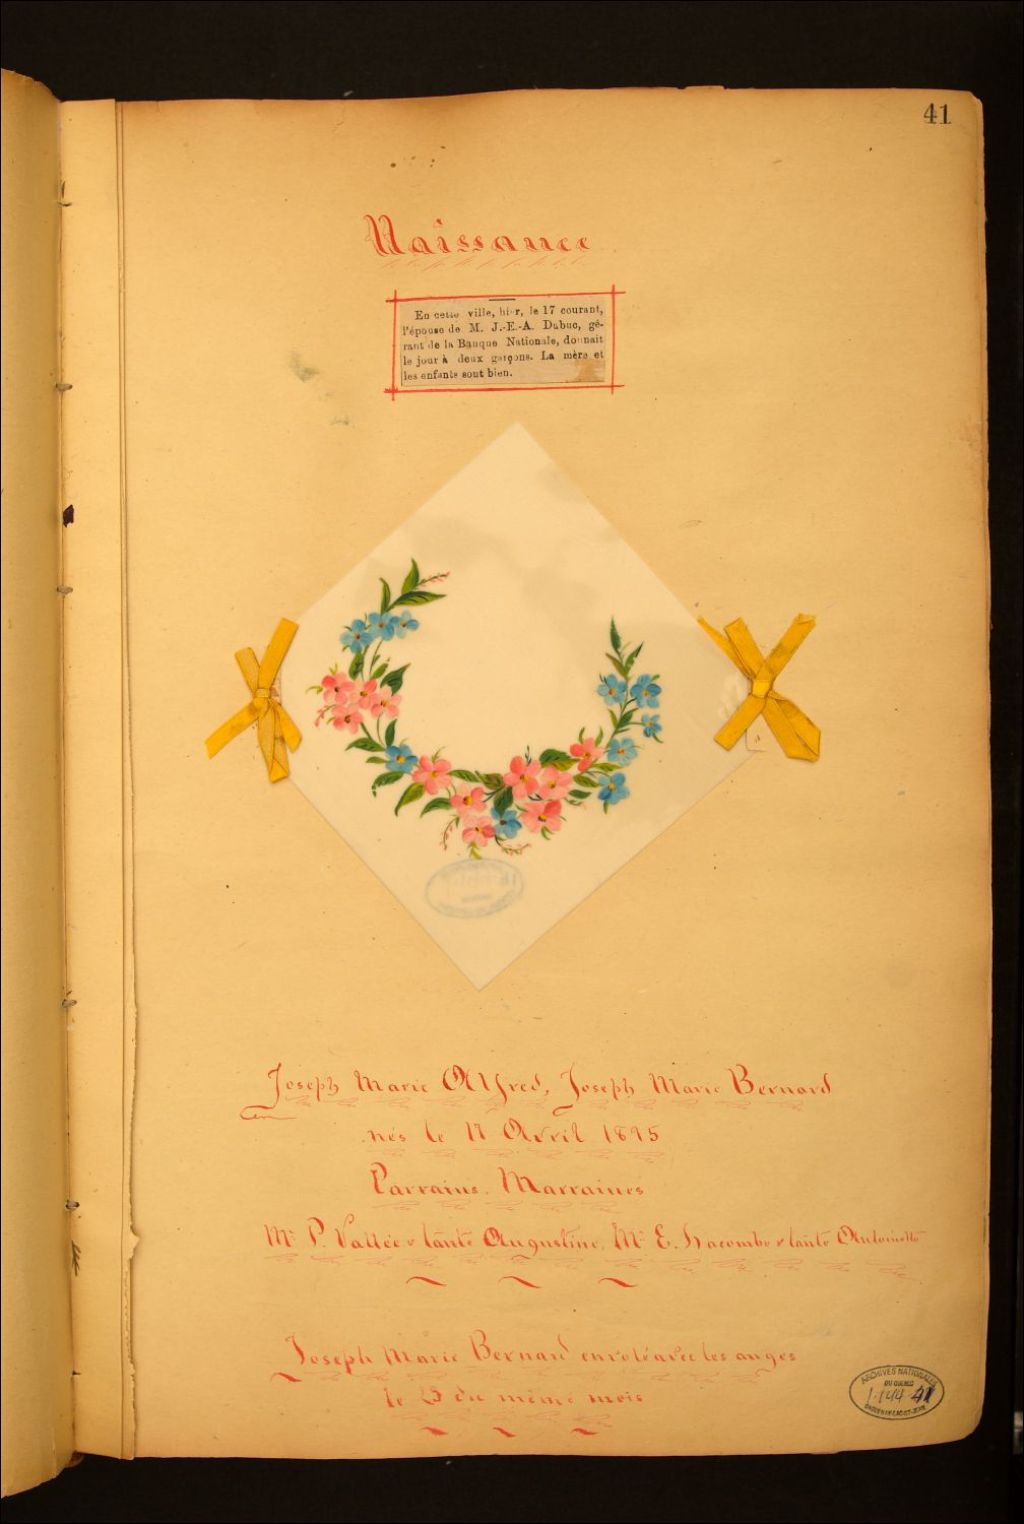 41
Naissance
En cette ville, hier, le 17 courant,
l'épouse de M. J.-E.-A. Dubuc, gé-
rant de la Banque Nationale, donnait
le jour à deux garçons. La mère et
les enfants sont bien.
Joseph Marie Alfred, Joseph Marie Bernard
nés le 17 Avril 1895
Parrains. Marraines
Mr P. Vallée & tante Augustine, Mr E. Lacombe & tante Antoinette
Joseph Marie Bernard enrolé avec les anges
le 25 du même mois
ARCHIVES NATIONALES
DU QUÉBEC
1-144-41